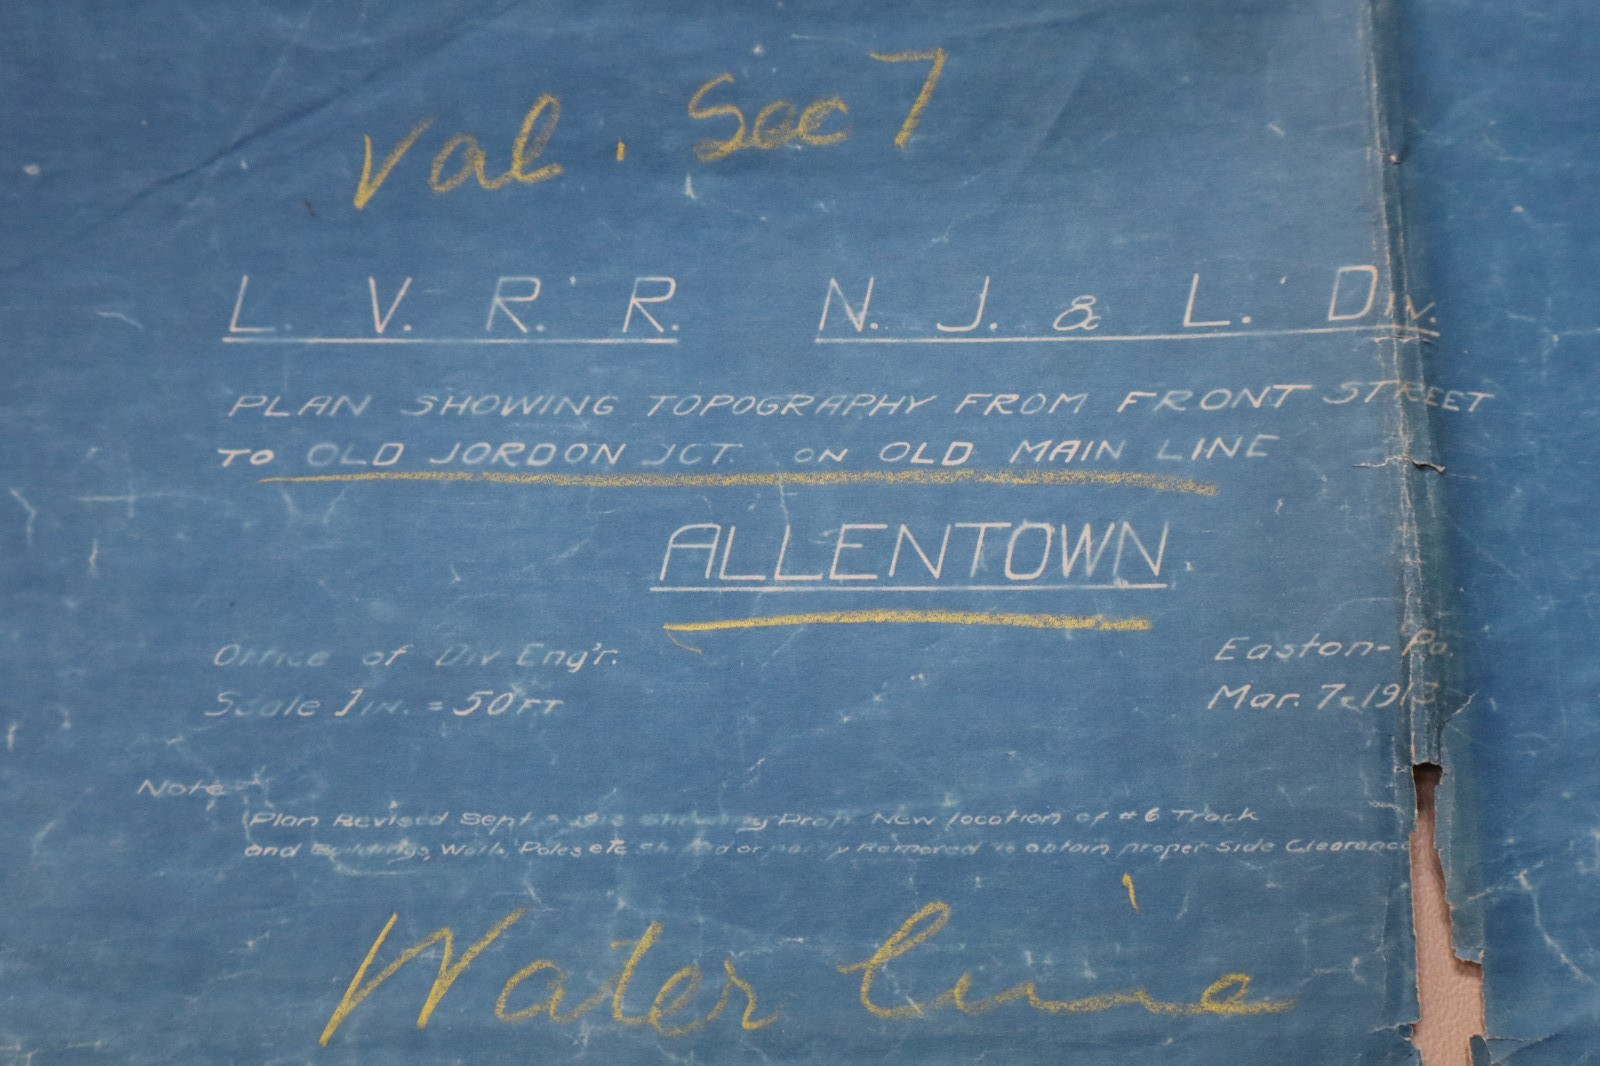 Val. Sec 7
L. V. R. R. N. J. & L. DIV.
PLAN SHOWING TOPOGRAPHY FROM FRONT STREET
TO OLD JORDON JCT. ON OLD MAIN LINE
ALLENTOWN
Office of Div Eng'r. Easton-Pa.
Scale 1 IN. = 50 FT Mar. 7
Note
Plan Revised Sept New location of #6 Track
and Buildings, Walls, Poles etc Removed to obtain proper side Clearance
Water line